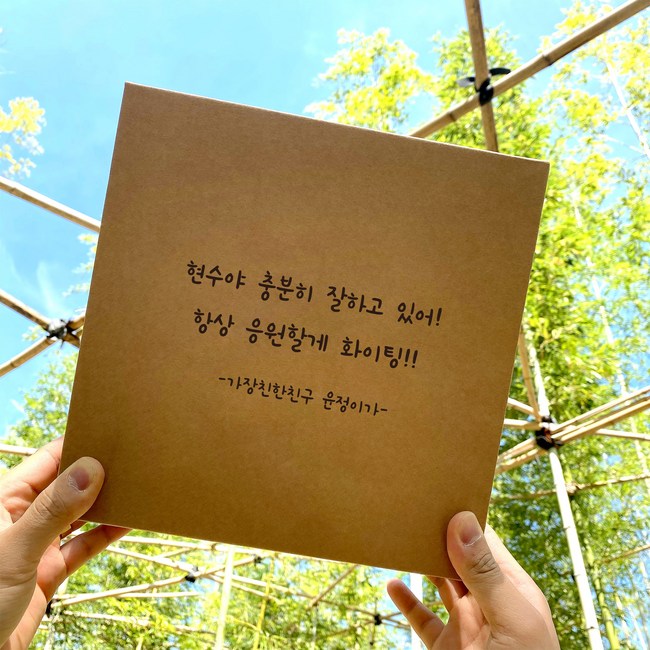 현수야 충분히 잘하고 있어!
항상 응원할게 화이팅!!
-가장친한친구 윤정이가-